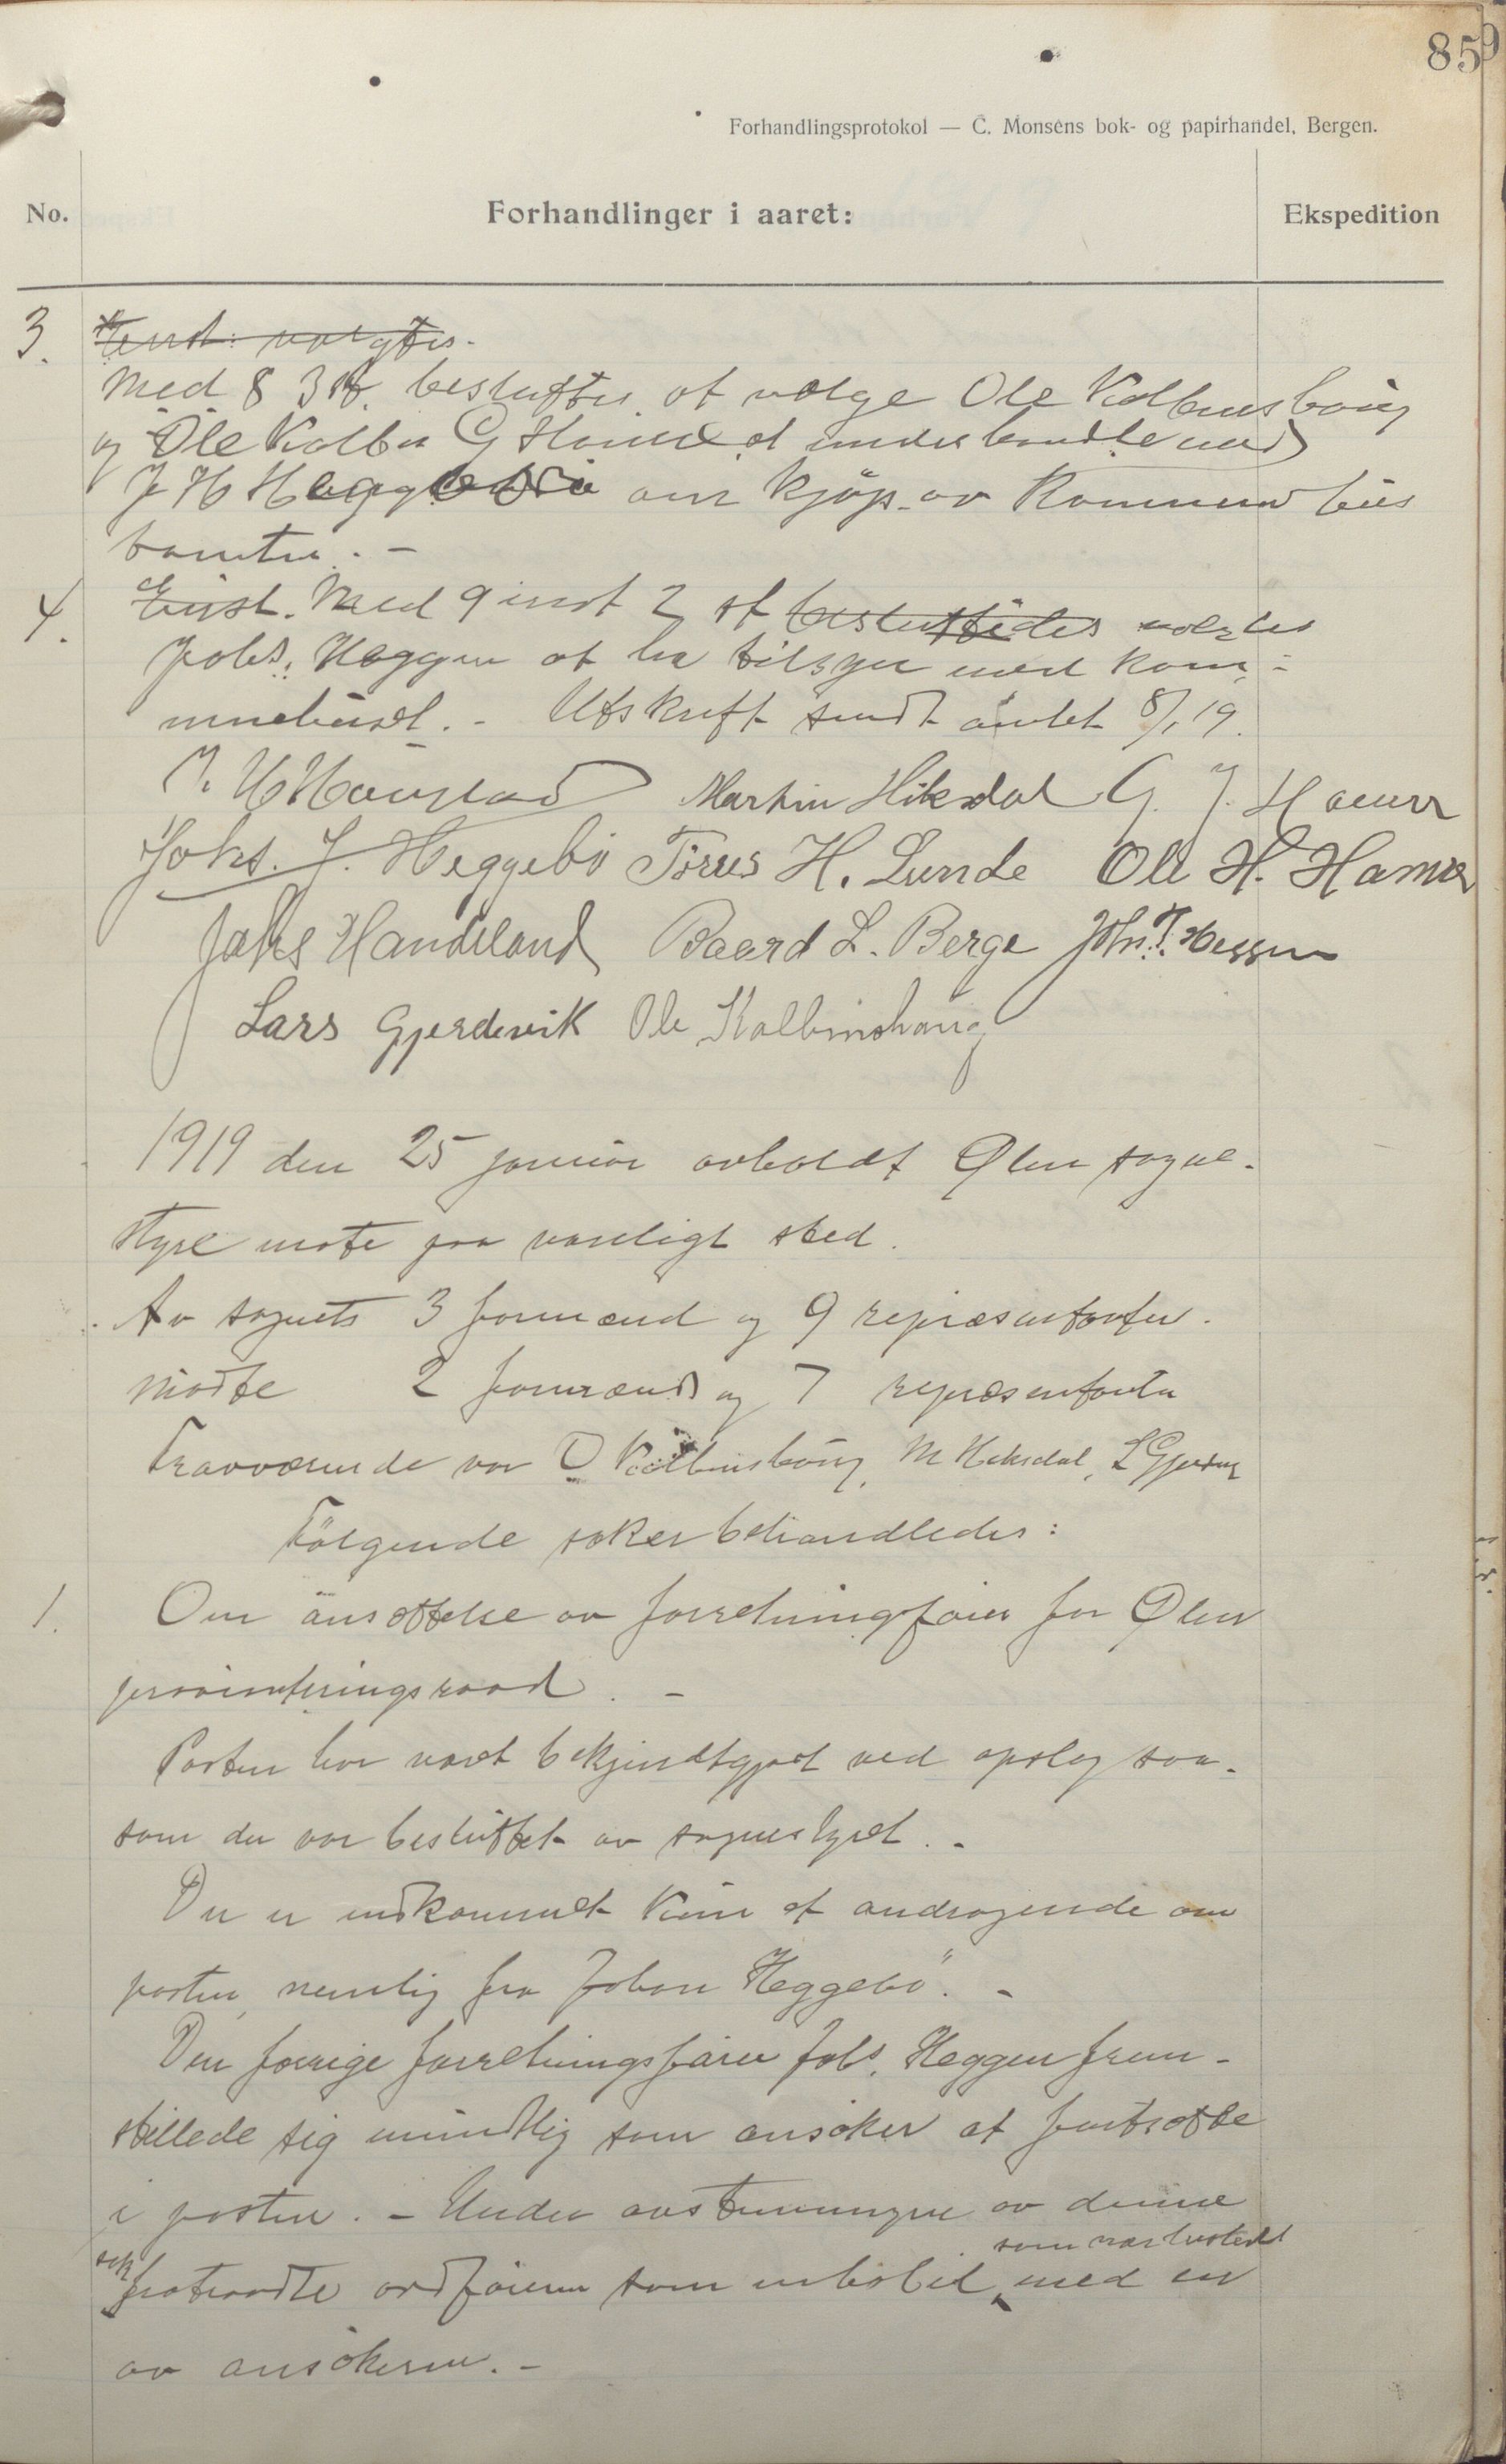 85
9
Forhandlingsprotokol — C. Monsens bok- og papirhandel, Bergen.
No. Forhandlinger i aaret: Ekspedition
3. Enst. valgtes.
Med 8 3 st. besluttes at vælge Ole Kolbenshaug
og Ole Kolben G Hamre at underhandle med
J H Heggebø om kjøp av Kommunehus
tomten. -
4. Enst. Med 9 imot 2 st besluttedes valgtes
Johs. Heggen at ha tilsyn med kom-
munehuset. - Utskrift sendt amtet 8/1 19.
Martin Hiksdal G. J. Hamre
Johs. J. Heggebö Törres H. Lunde Ole H. Hamre
Johs Handeland Baard L. Berge Joh. T. Heggen
Lars Gjerdevik Ole Kolbenshaug
1919 den 25 januar avholdt Ølen sogne-
styre møte paa vanligt sted.
Av sognets 3 formænd og 9 repræsentanter.
mødte 2 formænd og 7 repræsentanter
Fraværende var O Kolbenshaug, M Hiksdal, L Gjerdevik
Følgende saker behandledes:
1. Om ansættelse av forretningsfører for Ølen
provianteringsraad. -
Posten har været bekjendtgjort ved opslag saa-
som der var besluttet av sognestyret. -
Der er indkommet kun et andragende om
posten, nemlig fra Johan Heggebö. -
Den forrige forretningsfører Johs. Heggen frem-
stillede sig mundtlig som ansøker at fortsætte
i posten. - Under avstemningen av denne
sak fratraadte ordføreren som inhabil som nærbeslektet med en
av ansøkerne. -